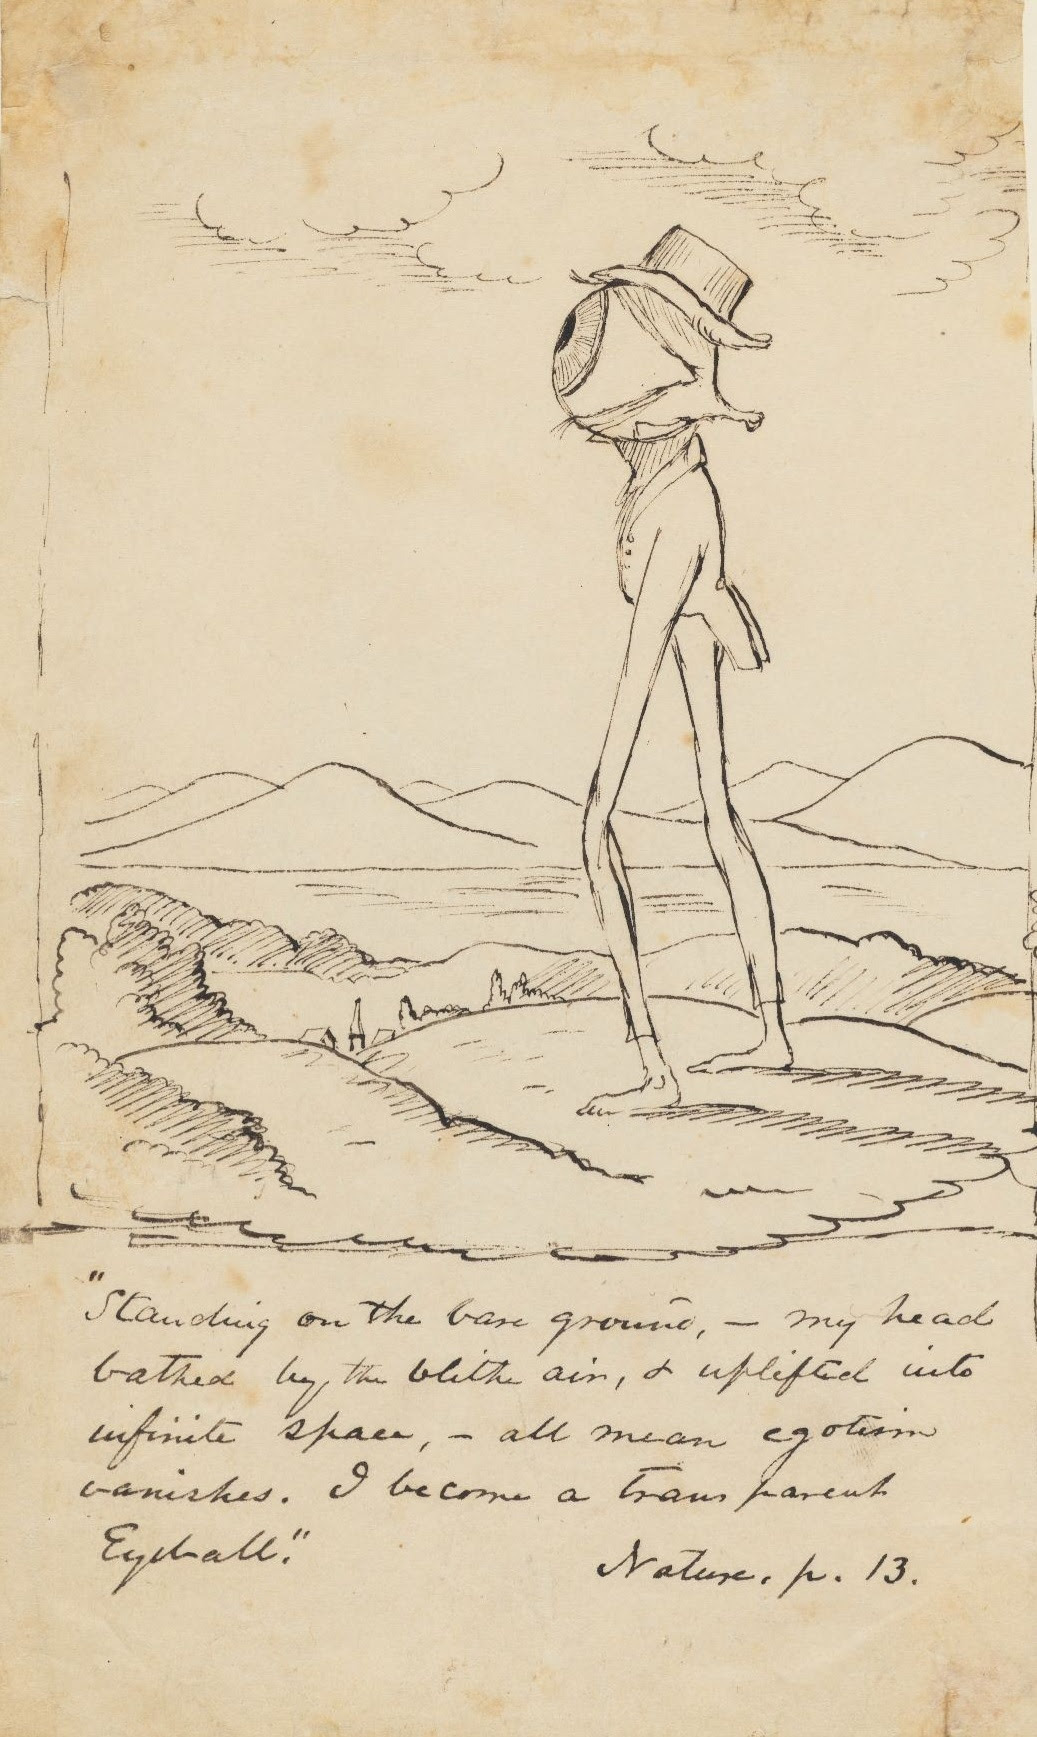 "Standing on the bare ground, – my head
bathed by the blithe air, & uplifted into
infinite space, – all mean egotism
vanishes. I become a transparent
Eyeball."
Nature. p. 13.